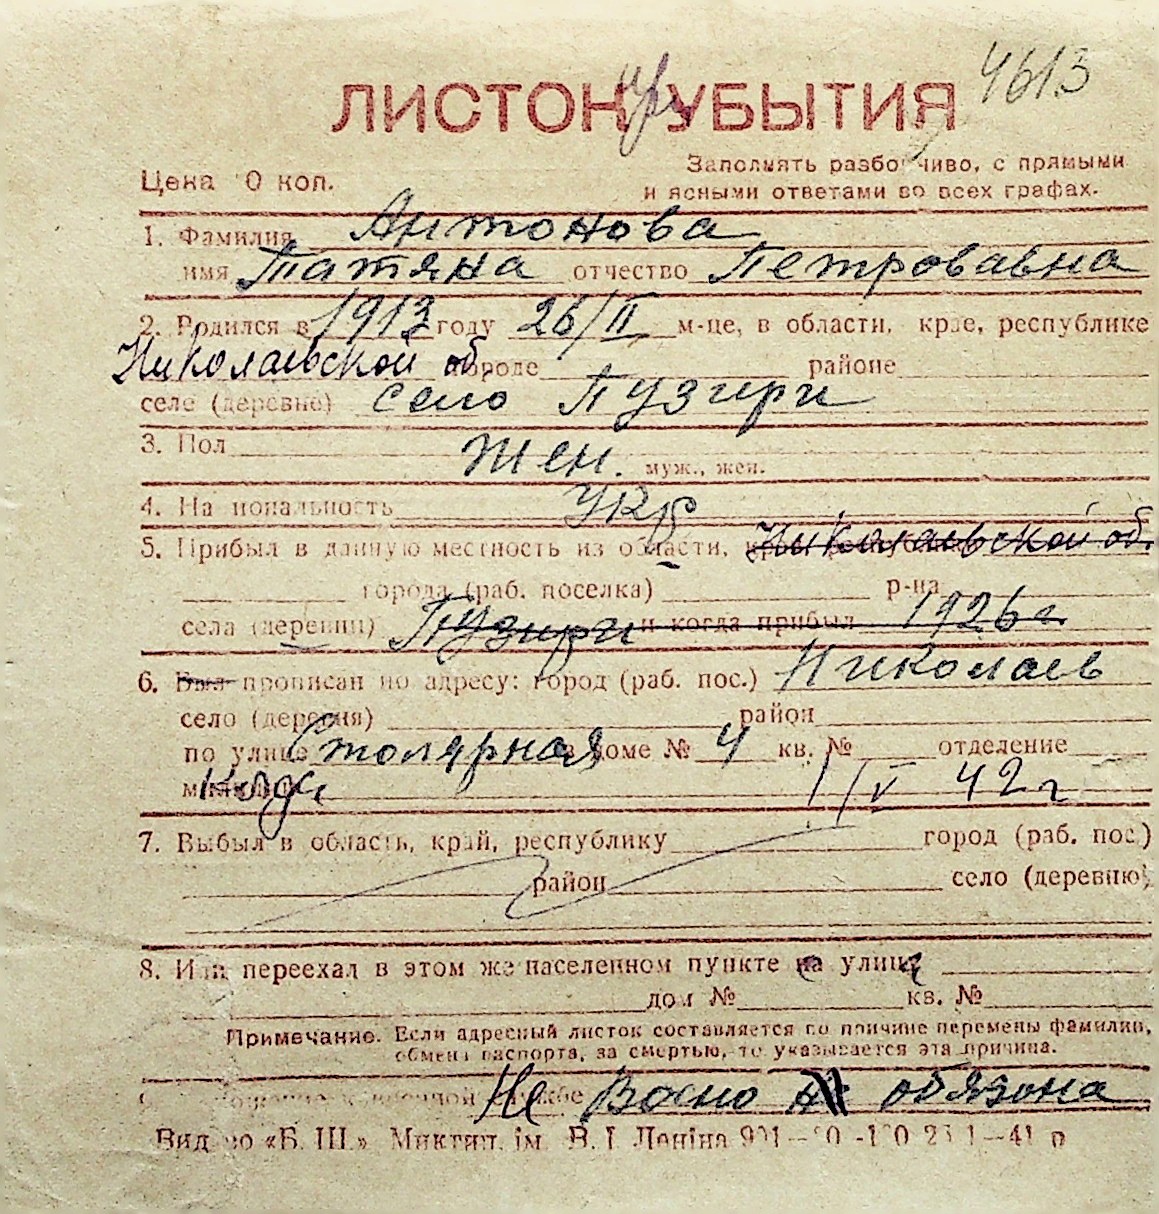 ЛИСТОК УБЫТИЯ 4613
Цена 0 коп.
Заполнять разборчиво, с прямыми
и ясными ответами во всех графах.
1. Фамилия Антонова
имя Татяна отчество Петрававна
2. Родился в 1913 году 26/II м-це, в области, крае, республике
Николаевской об. городе районе
селе (деревне) село Пузири
3. Пол Жен. муж., жен.
4. Национальность Укр
5. Прибыл в данную местность из области, Николаевской об.
города (раб. поселка) р-на
села (деревни) Пузири и когда прибыл 1926 г.
6. Был прописан по адресу: город (раб. пос.) Николаев
село (деревня) район
по улице Столярная в доме № 4 кв. № отделение
милиции 1/V 42 г
7. Выбыл в область, край, республику город (раб. пос.)
район село (деревню)
8. Или переехал в этом же населенном пункте на улицу
дом № кв. №
Примечание. Если адресный листок составляется по причине перемены фамилии,
обмена паспорта, за смертью, то указывается эта причина.
Не Воено обязона
Вид-во «Б. Ш.» Миктип. ім. В. І. Леніна